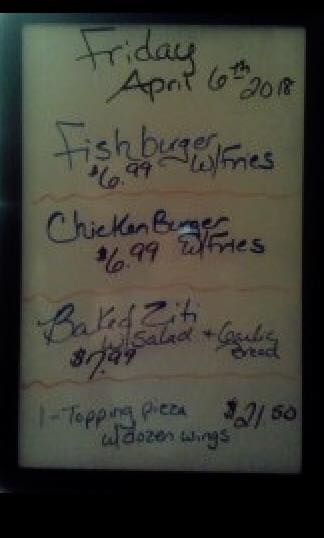 Friday
April 6th 2018
Fishburger
$6.99 w/Fries
Chicken Burger
$6.99 w/Fries
Baked Ziti
w/Salad + Garlic
$7.99 Bread
1-Topping pizza $21.50
w/dozen wings